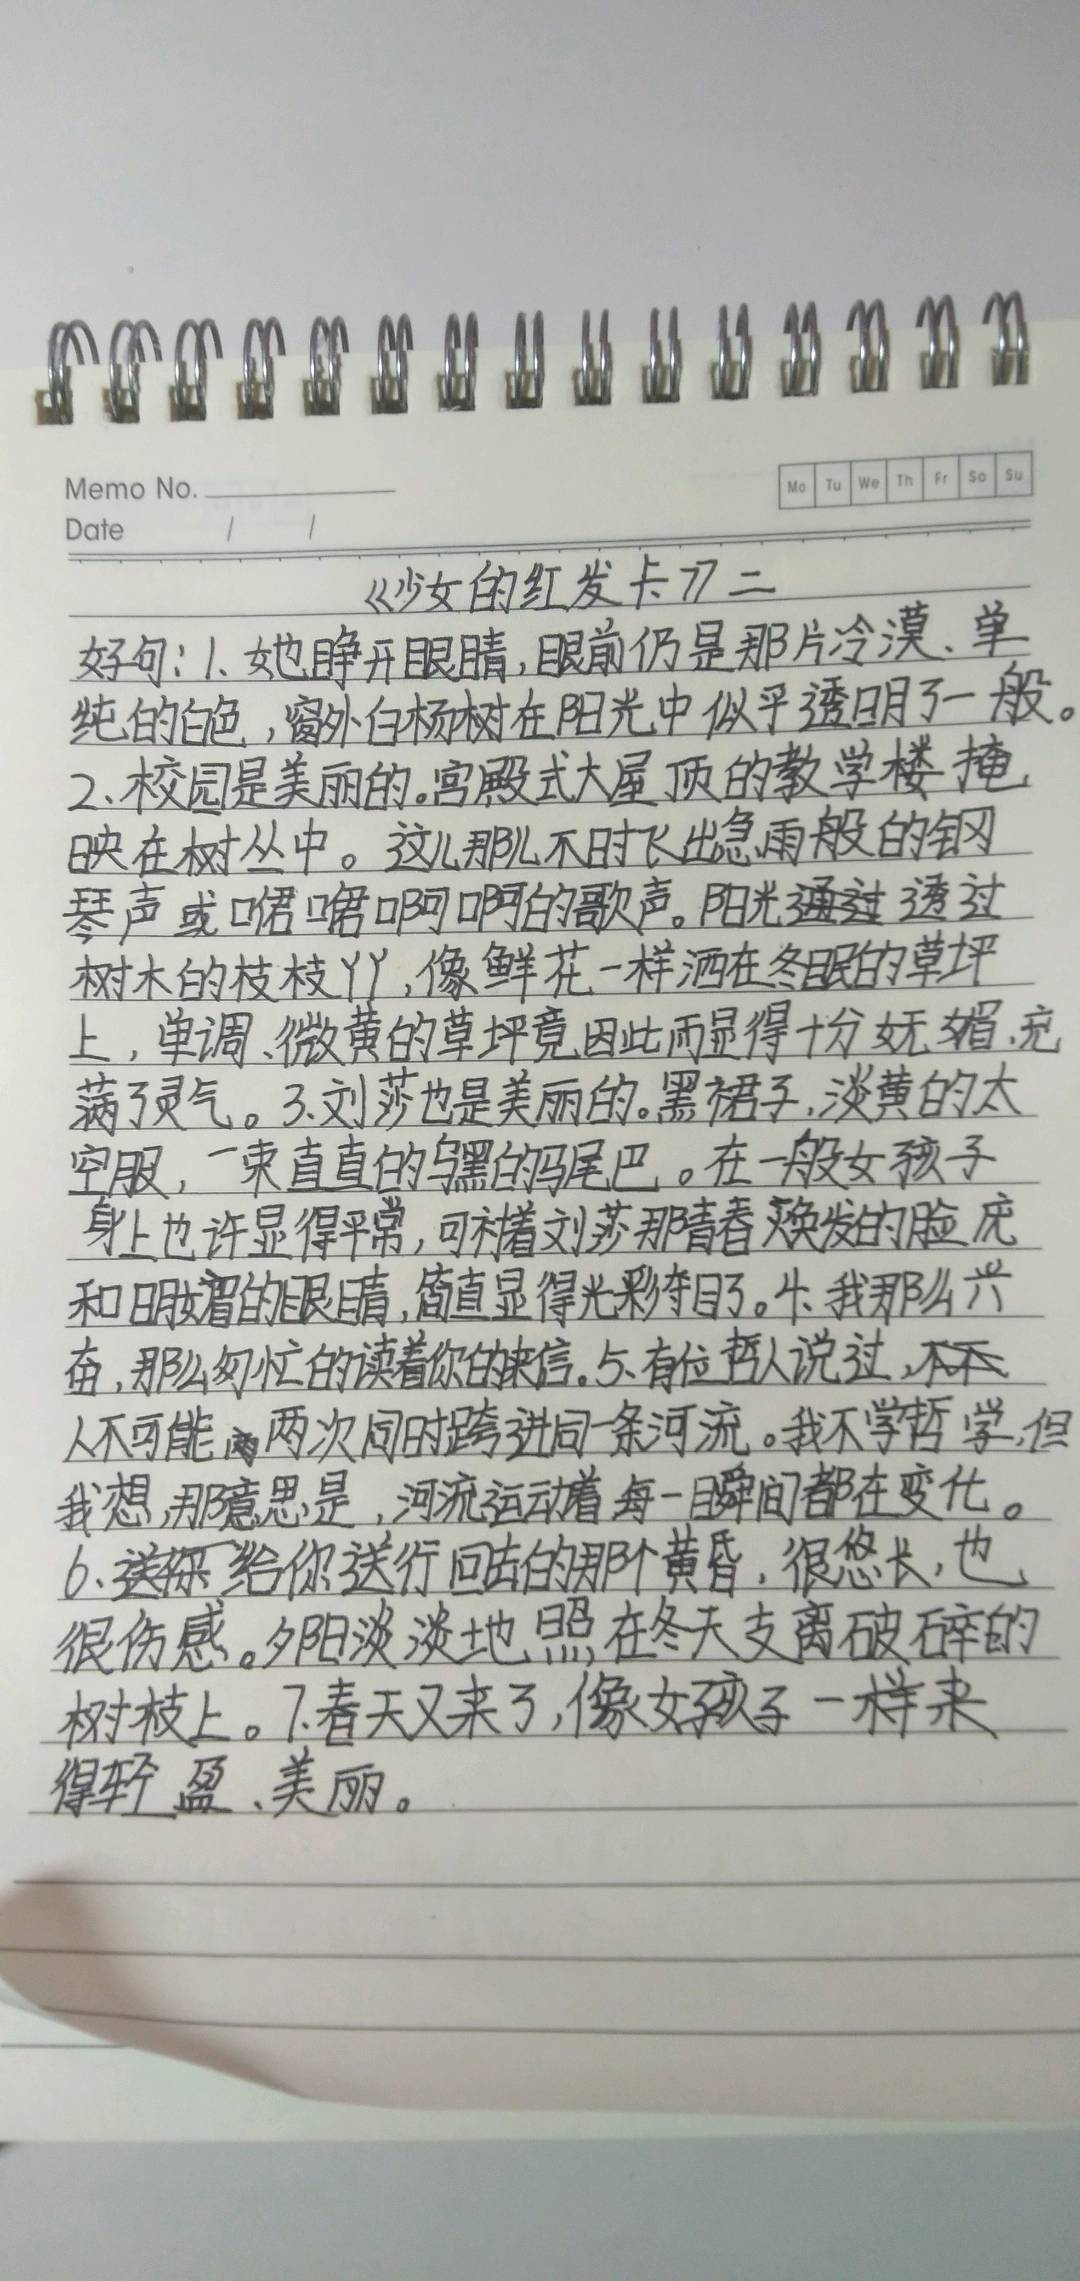 Memo No.
Mo Tu We Th Fr Sa Su
Date / /
《少女的红发卡》二
好句：1、她睁开眼睛，眼前仍是那片冷漠、单
纯的白色，窗外白杨树在阳光中似乎透明了一般。
2、校园是美丽的。宫殿式大屋顶的教学楼掩
映在树丛中。这儿那儿不时飞出急雨般的钢
琴声或啱啱啊啊的歌声。阳光通过透过
树木的枝枝丫丫，像鲜花一样洒在冬眠的草坪
上，单调、微黄的草坪竟因此而显得十分妩媚、充
满了灵气。3、刘莎也是美丽的。黑裙子，淡黄的太
空服，一束直直的乌黑的马尾巴。在一般女孩子
身上也许显得平常，可衬着刘莎那青春焕发的脸庞
和明媚的眼睛，简直显得光彩夺目了。4、我那么兴
奋，那么匆忙的读着你的来信。5、有位哲人说过，不不
人不可能 两次同时跨进同一条河流。我不学哲学，但
我想，那意思是，河流运动着每一瞬间都在变化。
6、送你给你送行回去的那个黄昏，很悠长，也
很伤感。夕阳淡淡地照在冬天支离破碎的
树枝上。7、春天又来了，像女孩子一样来
得轻盈、美丽。